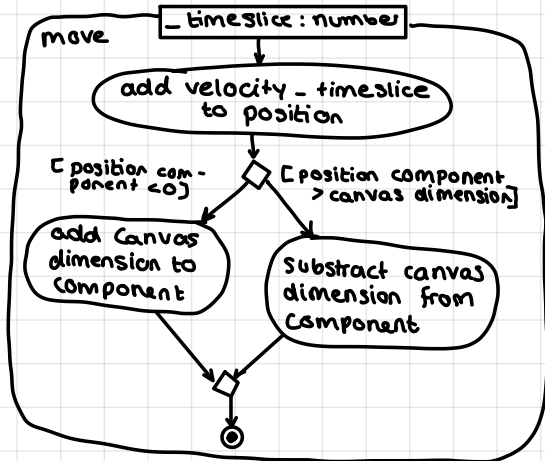 _ timeslice : number
move
add velocity _ timeslice
to position
[ position com-
ponent <0]
[ position component
> canvas dimension]
add Canvas
dimension to
component
Substract canvas
dimension from
Component